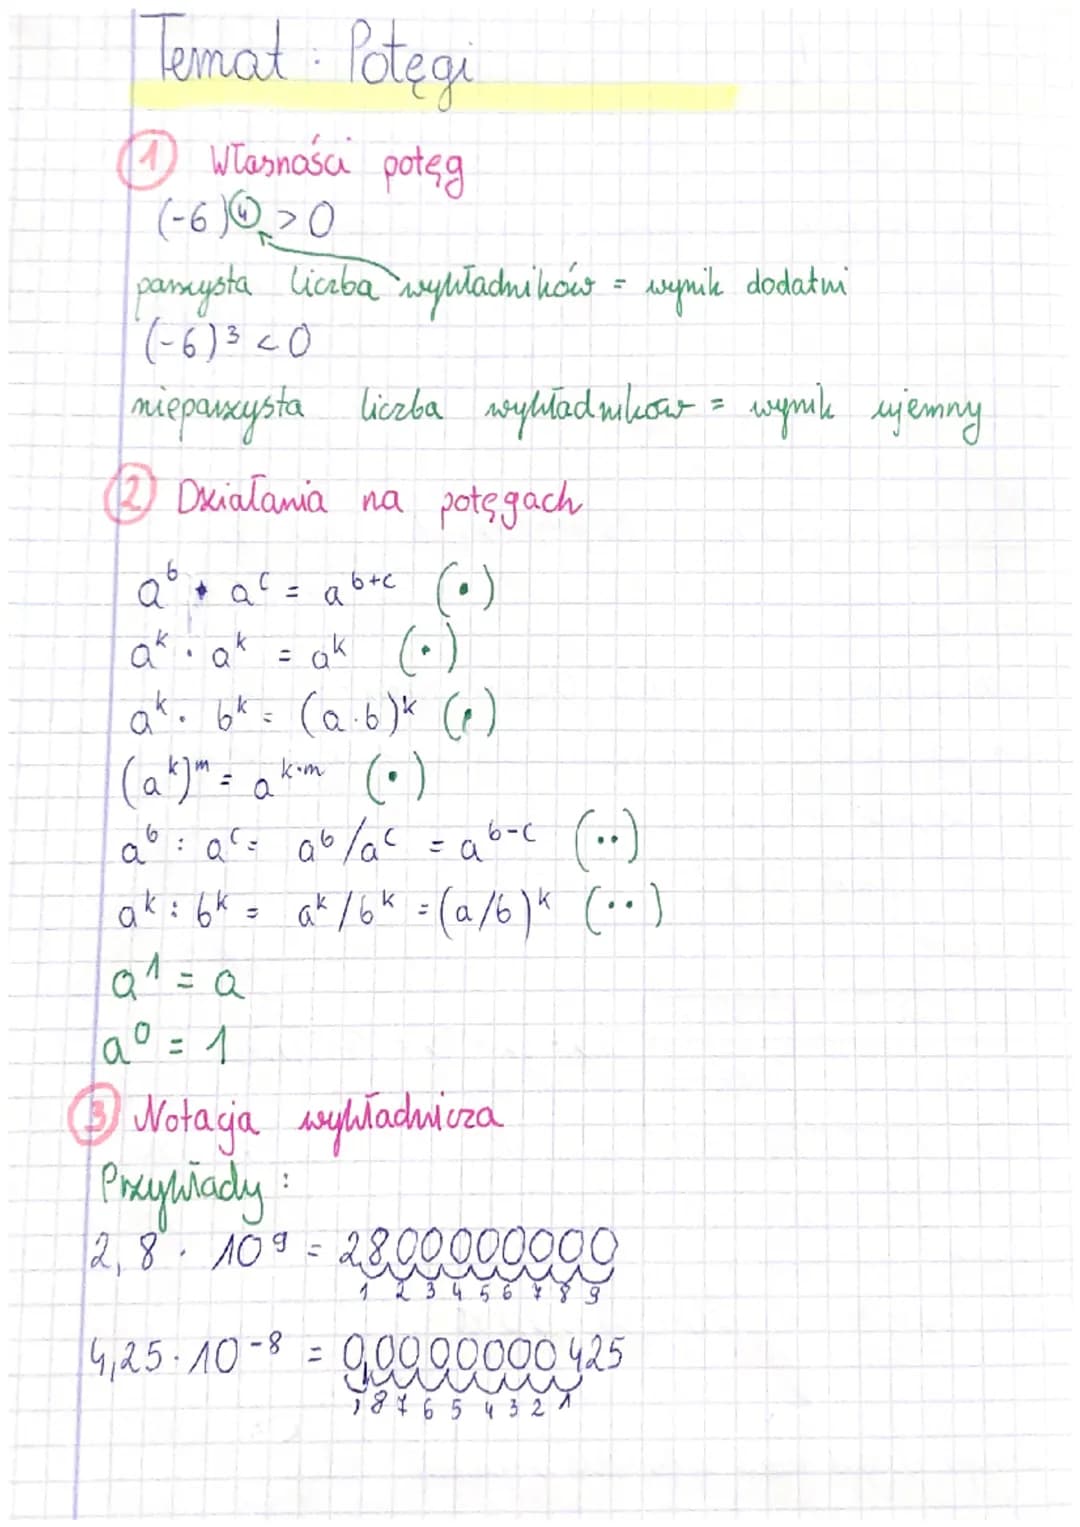 Temat: Potęgi
① Własności potęg
(-6)⁴ > 0
parzysta liczba wykładników = wynik dodatni
(-6)³ < 0
nieparzysta liczba wykładników = wynik ujemny
② Działania na potęgach
aᵇ · aᶜ = aᵇ⁺ᶜ (·)
aᵏ · aᵏ = aᵏ (·)
aᵏ · bᵏ = (a·b)ᵏ (·)
(aᵏ)ᵐ = aᵏ˙ᵐ (·)
aᵇ : aᶜ = aᵇ/aᶜ = aᵇ⁻ᶜ (··)
aᵏ : bᵏ = aᵏ/bᵏ = (a/b)ᵏ (··)
a¹ = a
a⁰ = 1
③ Notacja wykładnicza
Przykłady:
2,8 · 10⁹ = 2800000000
1 2 3 4 5 6 7 8 9
4,25 · 10⁻⁸ = 0,0000000425
, 8 7 6 5 4 3 2 1